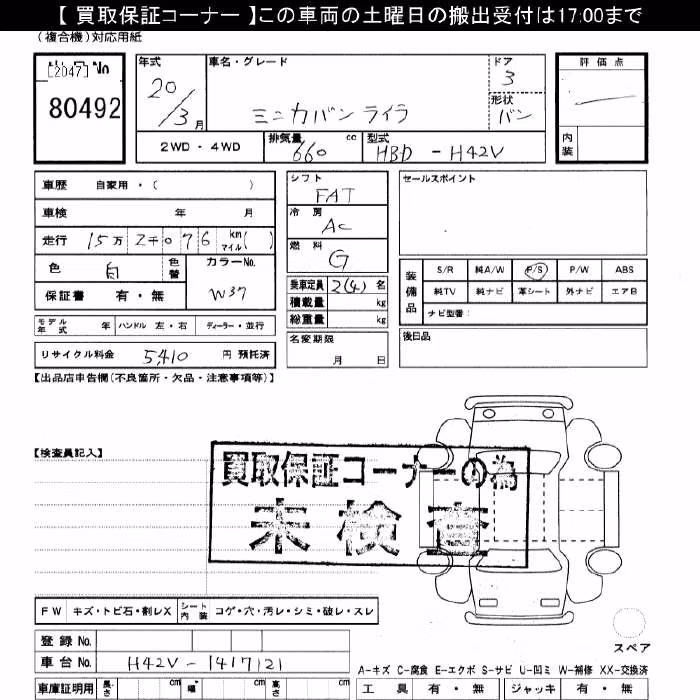 【 買取保証コーナー 】この車両の土曜日の搬出受付は17:00まで
(複合機)対応用紙
[2047] No
80492
年式 20/3月
車名・グレード
ミニカバン ライラ
ドア 3
形状 バン
評 価 点
内装
2WD ・ 4WD
排気量 660 cc
型式 HBD - H42V
車歴 自家用 ・ ( )
車検 年 月
走行 15万 2千076 km マイル ( )
色 白 色替
カラーNo. W37
保証書 有 ・ 無
モデル年式 年 ハンドル 左 ・ 右 ディーラー ・ 並行
リサイクル料金 5,410 円 預託済
シフト FAT
冷房 AC
燃料 G
乗車定員 2(4) 名
積載量 kg
総重量 kg
名変期限 月 日
セールスポイント
装備品
S/R 純A/W P/S P/W ABS
純TV 純ナビ 革シート 外ナビ エアB
ナビ型番:
後日品
【出品店申告欄(不良箇所・欠品・注意事項等)】
【検査員記入】
買取保証コーナーの為
未検査
FW キズ・トビ石・割レX シート内装 コゲ・穴・汚レ・シミ・破レ・スレ
登録 No.
車台 No. H42V - 1417121
車庫証明用 長さ cm 幅 cm 高さ cm
スペア
A-キズ C-腐食 E-エクボ S-サビ U-凹ミ W-補修 XX-交換済
工 具 有 ・ 無 ジャッキ 有 ・ 無